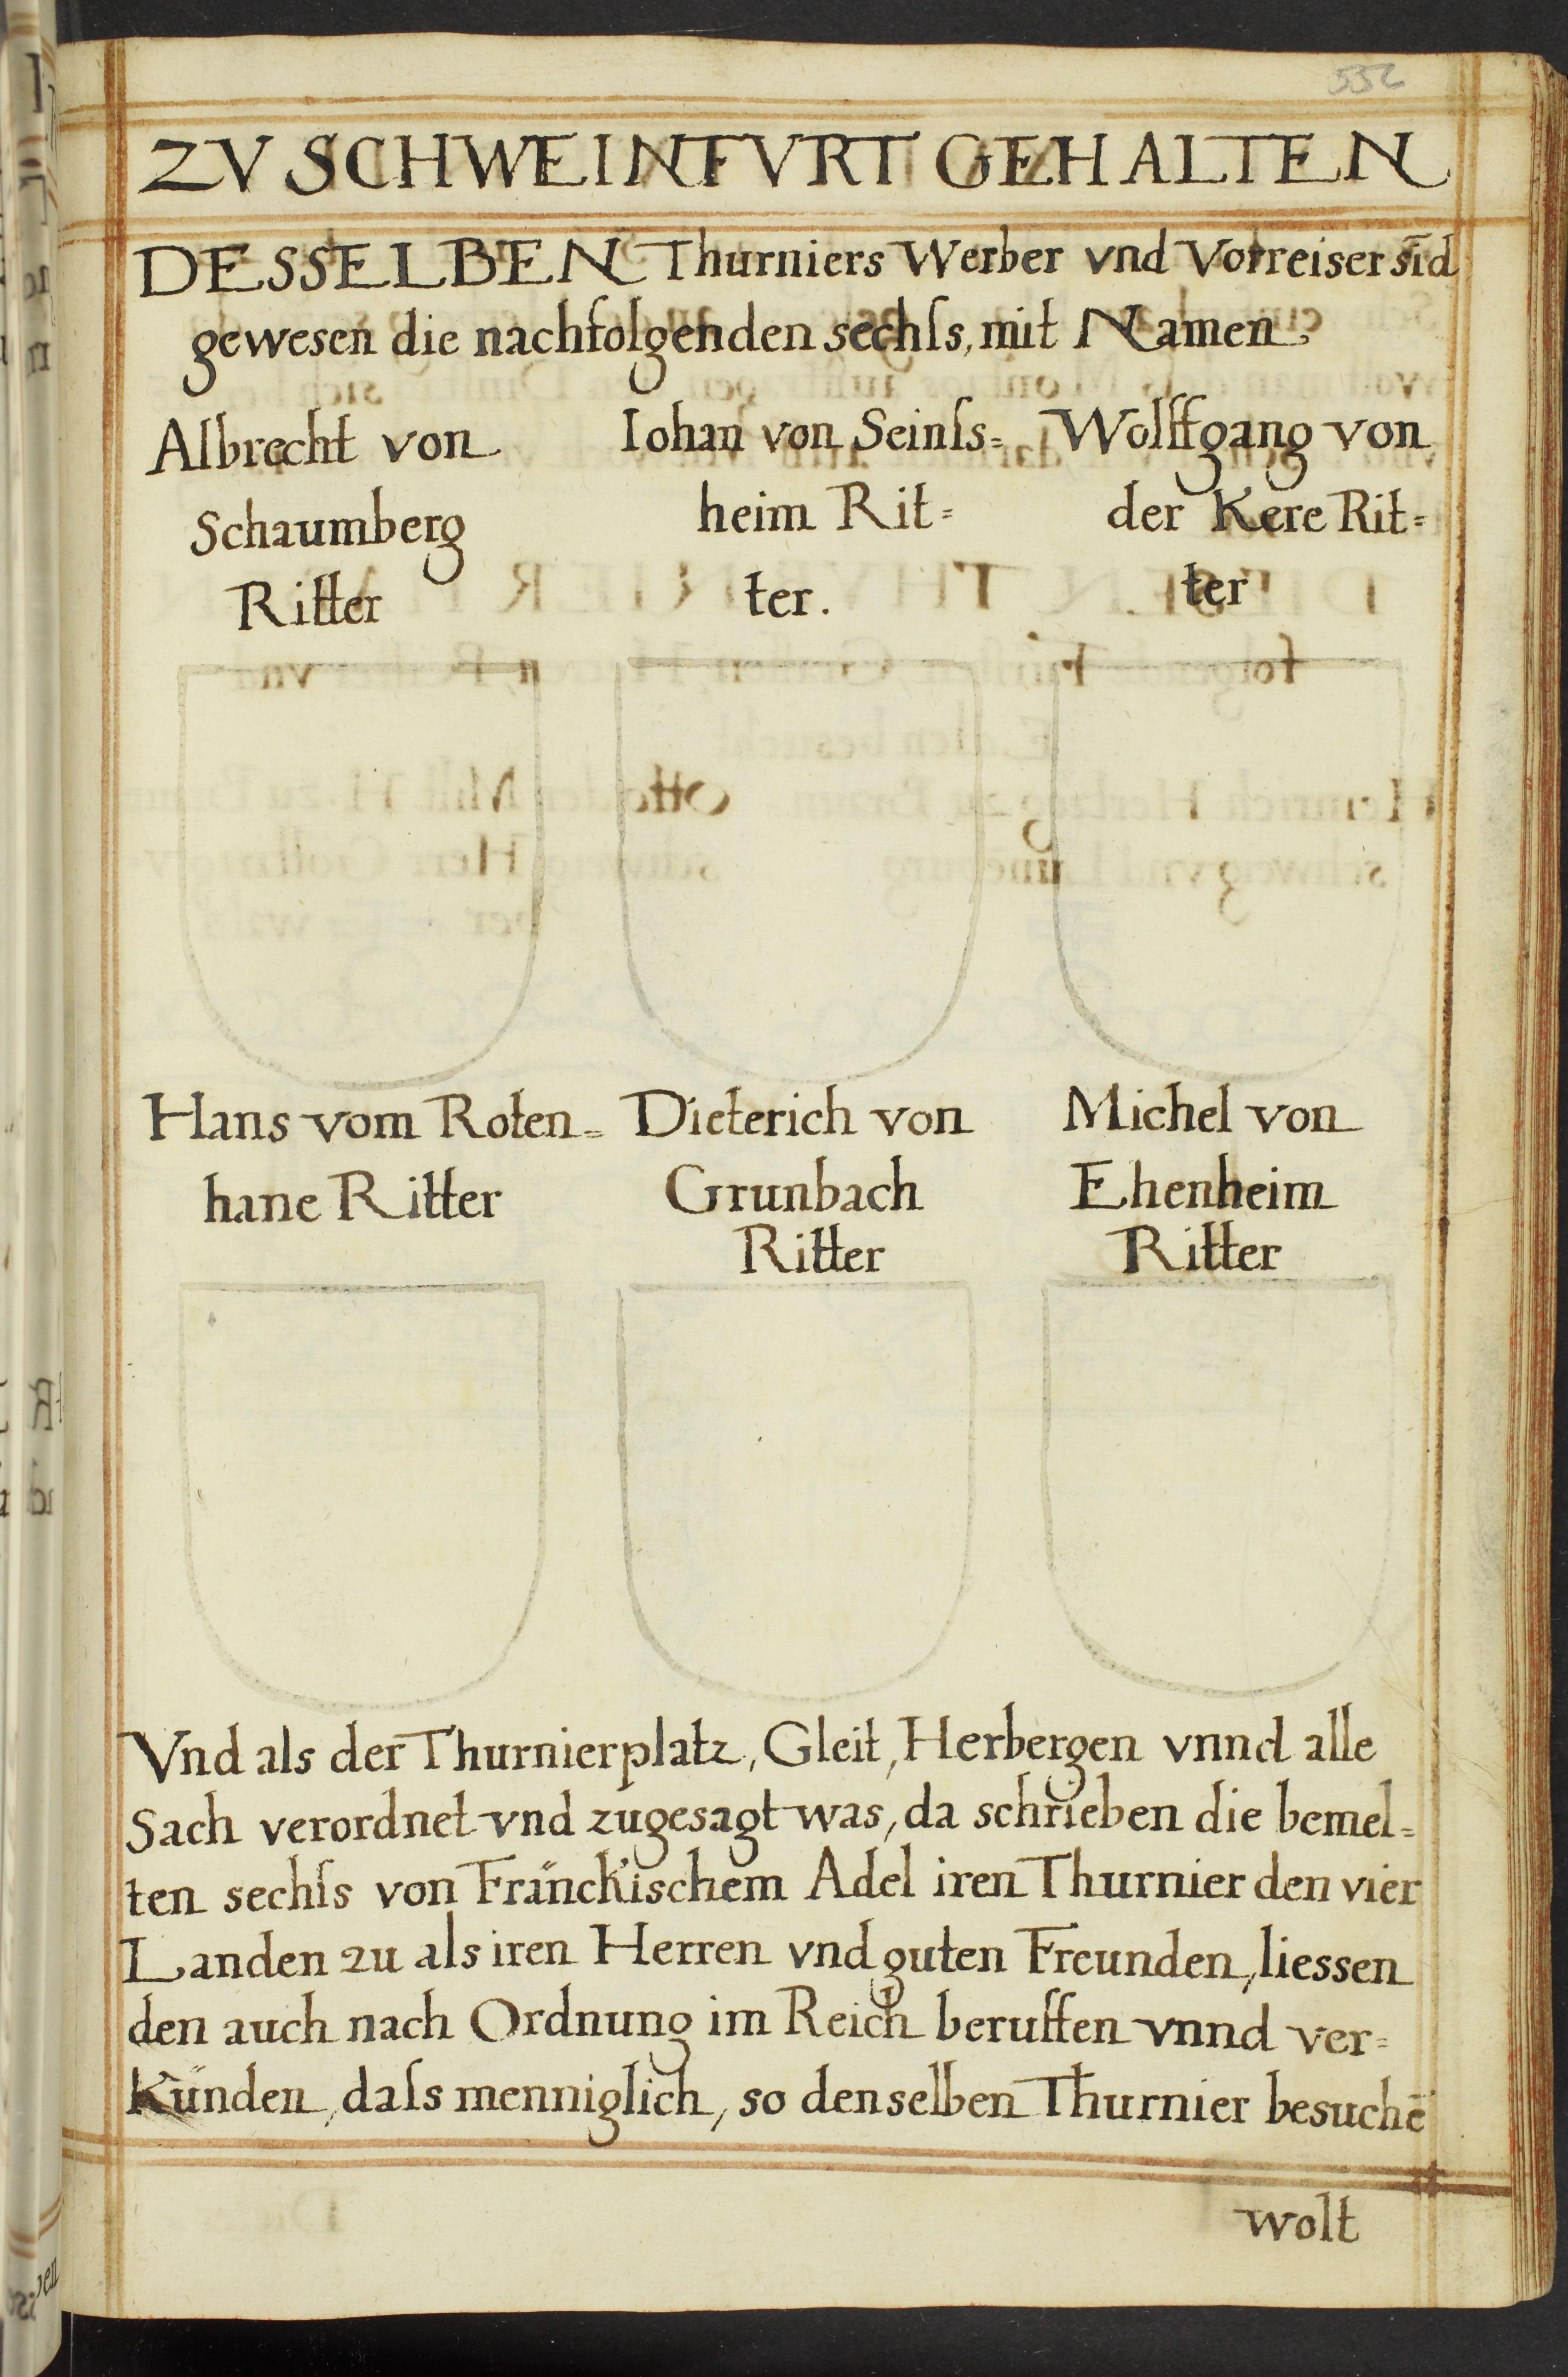 552
ZV SCHWEINFVRT GEHALTEN
DESSELBEN Thurniers Werber vnd Vorreiser sīd
gewesen die nachfolgenden sechſs, mit Namen
Albrecht von
Schaumberg
Ritter
Iohan von Seinſs=
heim Rit=
ter.
Wolffgang von
der Kere Rit=
ter
Hans vom Roten=
hane Ritter
Dieterich von
Grunbach
Ritter
Michel von
Ehenheim
Ritter
Vnd als der Thurnierplatz, Gleit, Herbergen vnnd alle
Sach verordnet vnd zugesagt was, da schrieben die bemel=
ten sechſs von Fränckischem Adel iren Thurnier den vier
Landen zu als iren Herren vnd guten Freunden, liessen
den auch nach Ordnung im Reich beruffen vnnd ver=
künden, daſs menniglich, so denselben Thurnier besuchē
wolt